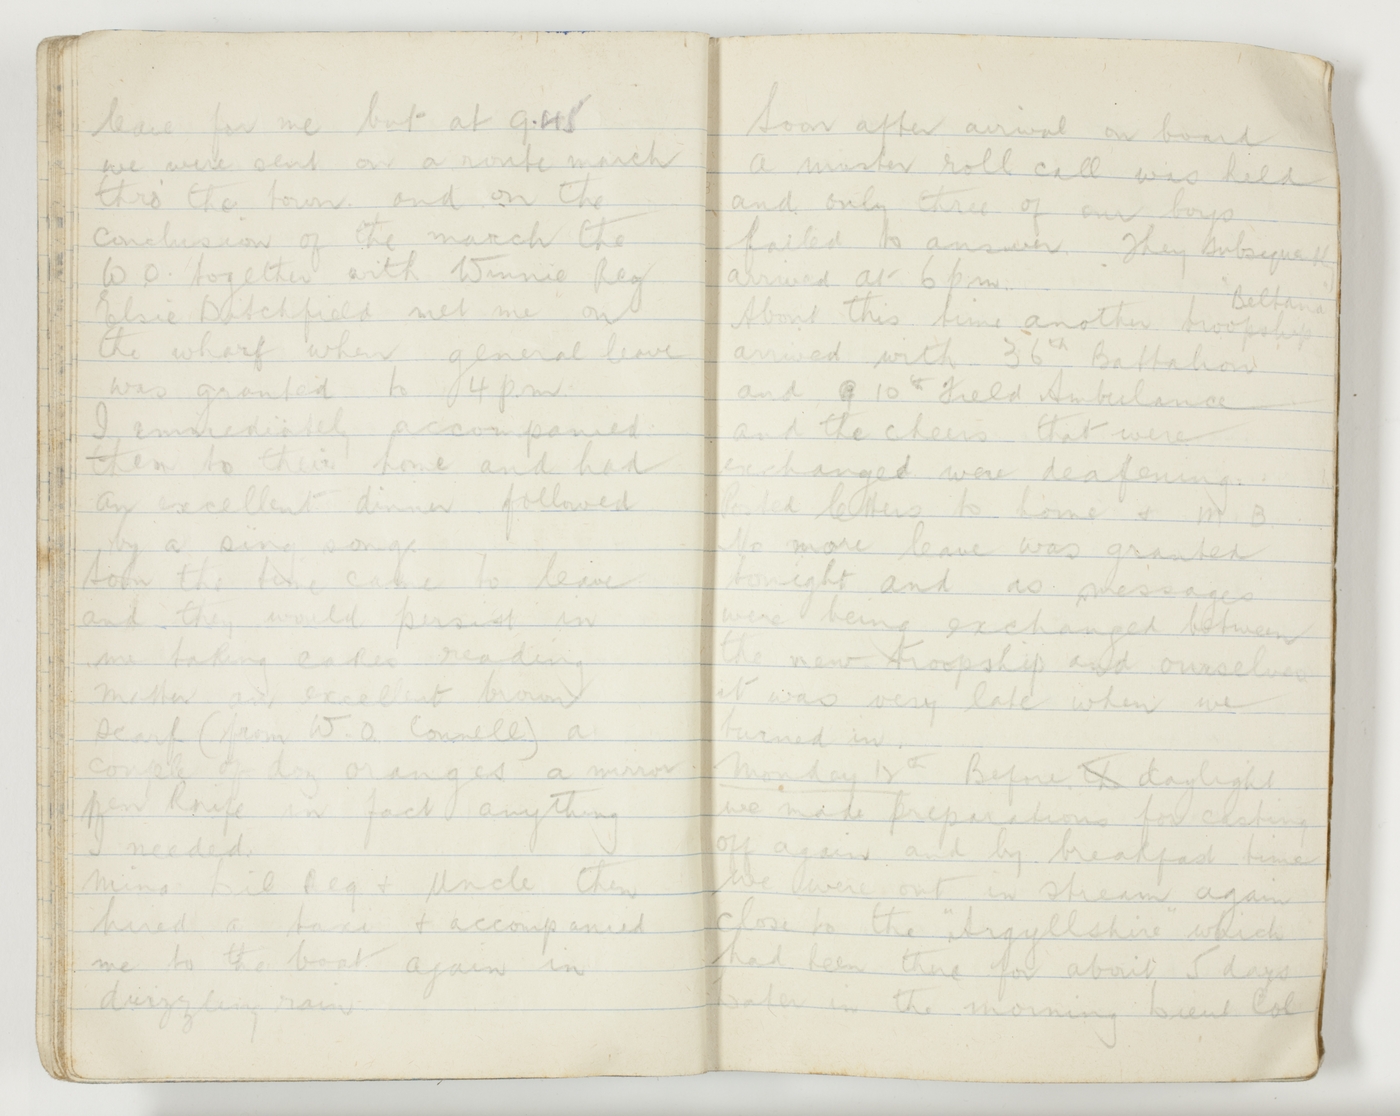 leave for me but at 9.45
we were sent on a route march
thro' the town and on the
conclusion of the march the
W O together with Winnie Reg
Elsie Ditchfield met me on
the wharf when general leave
was granted to 4 p.m.
I immediately accompanied
them to their home and had
an excellent dinner followed
by a sing song.
Soon the time came to leave
and they would persist in
me taking cakes reading
matter an excellent brown
scarf (from W. O. Connell) a
couple of doz oranges a mirror
pen knife in fact anything
I needed.
Lil Reg & Uncle then
hired a taxi & accompanied
me to the boat again in
drizzling rain
Soon after arrival on board
a muster roll call was held
and only three of our boys
failed to answer. They subsequently
arrived at 6 p.m.
"Beltana"
About this time another troopship
arrived with 36th Battalion
and 10th Field Ambulance
and the cheers that were
exchanged were deafening.
Posted letters to home & M. B.
No more leave was granted
tonight and as messages
were being exchanged between
the new troopship and ourselves
it was very late when we
turned in.
Monday 12th Before daylight
we made preparations for casting
off again and by breakfast time
we were out in stream again
close to the "Argyllshire" which
had been there for about 5 days
Later in the morning Lieut Col